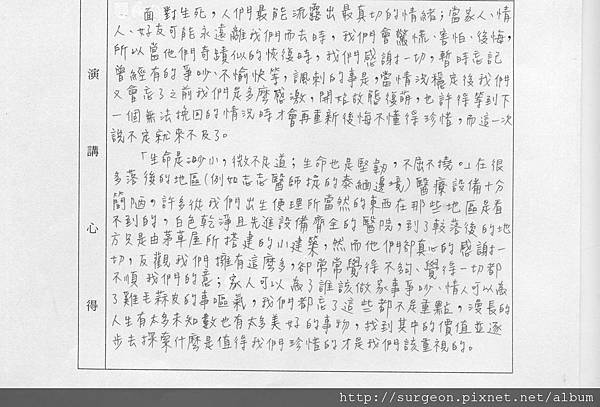 面對生死,人們最能流露出最真切的情緒;當家人、情
人、好友可能永遠離我們而去時,我們會驚慌、害怕、後悔,
所以當他們奇蹟似的恢復時,我們感謝一切,暫時忘記
曾經有的爭吵、不愉快等,諷刺的事是,當情況穩定後我們
又會忘了之前我們是多麼感激,開始故態復萌,也許得等到下
一個無法挽回的情況時才會再重新後悔不懂得珍惜,而這一次
說不定就來不及了。
「生命是渺小,微不足道;生命也是堅韌,不屈不撓。」在很
多落後的地區(例如志志醫師提的泰緬邊境)醫療設備十分
簡陋,許多從我們出生便理所當然的東西在那些地區是看
不到的,白色乾淨且先進設備齊全的醫院,到了較落後的地
方只是由茅草屋所搭建的小建築,然而他們卻真心的感謝一
切,反觀我們擁有這麼多,卻常常覺得不夠、覺得一切都
不順我們的意;家人可以為了誰該做家事爭吵、情人可以為
了雞毛蒜皮的事嘔氣,我們都忘了這些都不是重點,漫長的
人生有太多未知數也有太多美好的事物,找到其中的價值並逐
步去探索什麼是值得我們珍惜的才是我們該重視的。
演
講
心
得
http://surgeon.pixnet.net/album